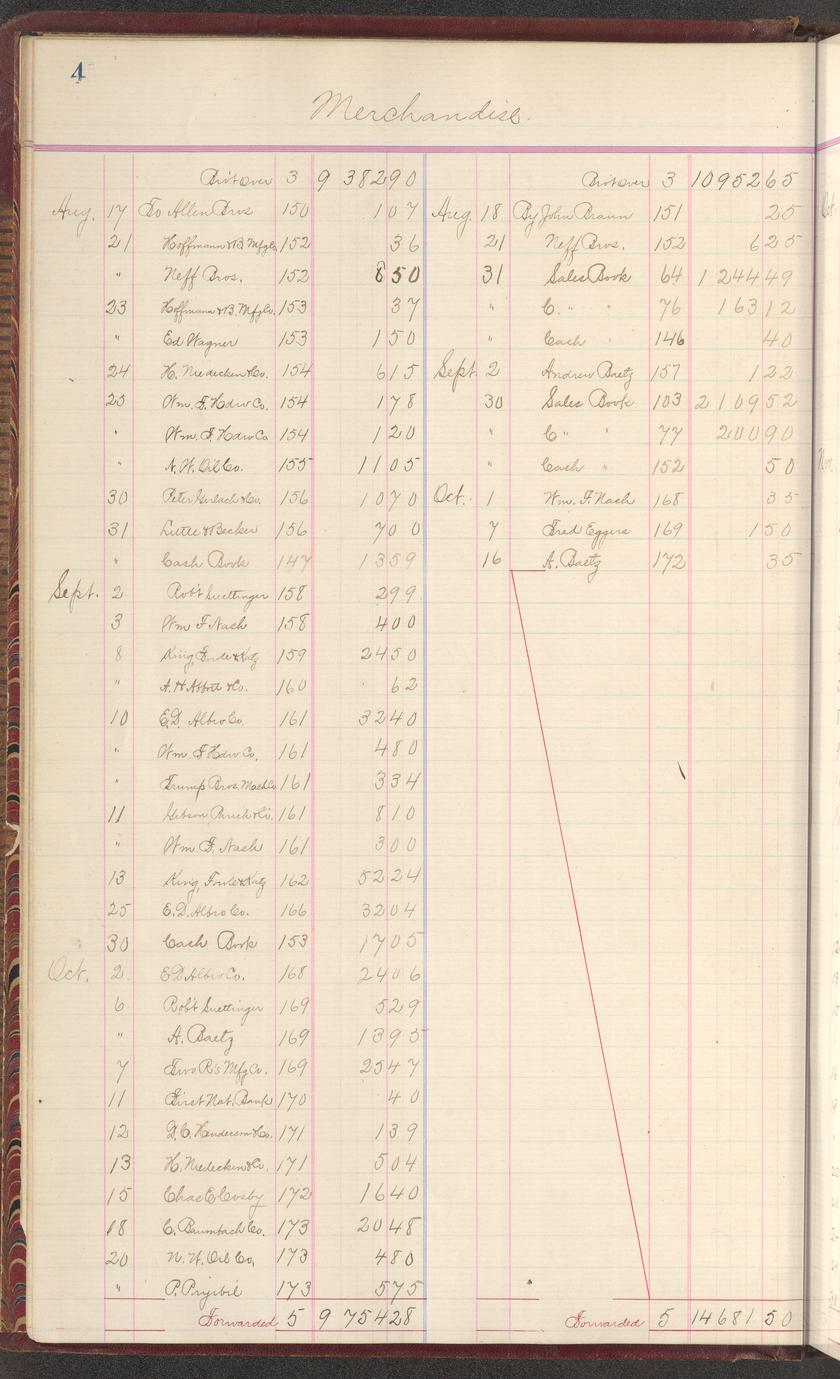 4
Merchandise.
Bro't over 3 9 382 90
Aug. 17 To Allen Bros 150 1 07
21 Hoffmann & B. Mfg Co 152 36
" Neff Bros. 152 8 50
23 Hoffmann & B. Mfg Co. 153 37
" Ed Wagner 153 1 50
24 H. Niedecken & Co. 154 6 15
25 Wm. F. Hdw Co. 154 1 78
" Wm. F. Hdw Co 154 1 20
" N. W. Oil Co. 155 11 05
30 Peter Gerlach & Co. 156 10 70
31 Luttle & Becker 156 7 00
" Cash Book 147 13 59
Sept. 2 Rob't Suettinger 158 2 99
3 Wm F Nash 158 4 00
8 King, Fowle & Katz 159 24 50
" A. H. Abbott & Co. 160 62
10 E.D. Albro Co. 161 32 40
" Wm. F Hdw Co. 161 4 80
" Trump Bros. Mach Co 161 3 34
11 Gibson 161 8 10
" Wm. F. Nash 161 3 00
13 King, Fowle & Katz 162 52 24
25 E.D. Albro Co. 166 32 04
30 Cash Book 153 17 05
Oct. 2 E D Albro Co. 168 24 06
6 Rob't Suettinger 169 5 29
" A. Baetz 169 13 95
7 Two R's Mfg Co. 169 25 47
11 First Nat. Bank 170 40
12 D. C. Henderson & Co. 171 1 39
13 H. Niedecken & Co. 171 5 04
15 Chas E Crosby 172 16 40
18 C. Baumbach Co. 173 20 48
20 N. W. Oil Co, 173 4 80
" P. Pryibil 173 5 75
Forwarded 5 9 754 28
Bro't over 3 10952 65
Aug 18 By John Braun 151 25
21 Neff Bros. 152 6 25
31 Sales Book 64 1 244 49
" C. " " 76 163 12
" Cash " 146 40
Sept. 2 Andrew Baetz 157 1 22
30 Sales Book 103 2 109 52
" C " " 77 200 90
" Cash " 152 50
Oct. 1 Wm. F. Nash 168 35
7 Fred Eggers 169 1 50
16 A. Baetz 172 35
Forwarded 5 14681 50
Oct.
Nov.